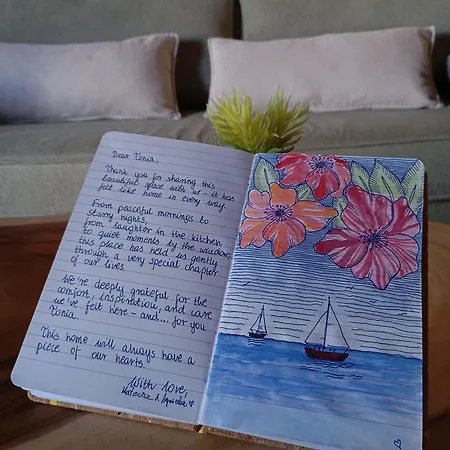 Dear Tonia,
Thank you for sharing this
beautiful space with us - it has
felt like home in every way.
From peaceful mornings to
starry nights,
from laughter in the kitchen
to quiet moments by the window,
this place has held us gently
through a very special chapter
of our lives.
We're deeply grateful for the
comfort, inspiration, and care
we've felt here - and... for you
Tonia.
This home will always have a
piece of our hearts.
With love,
&